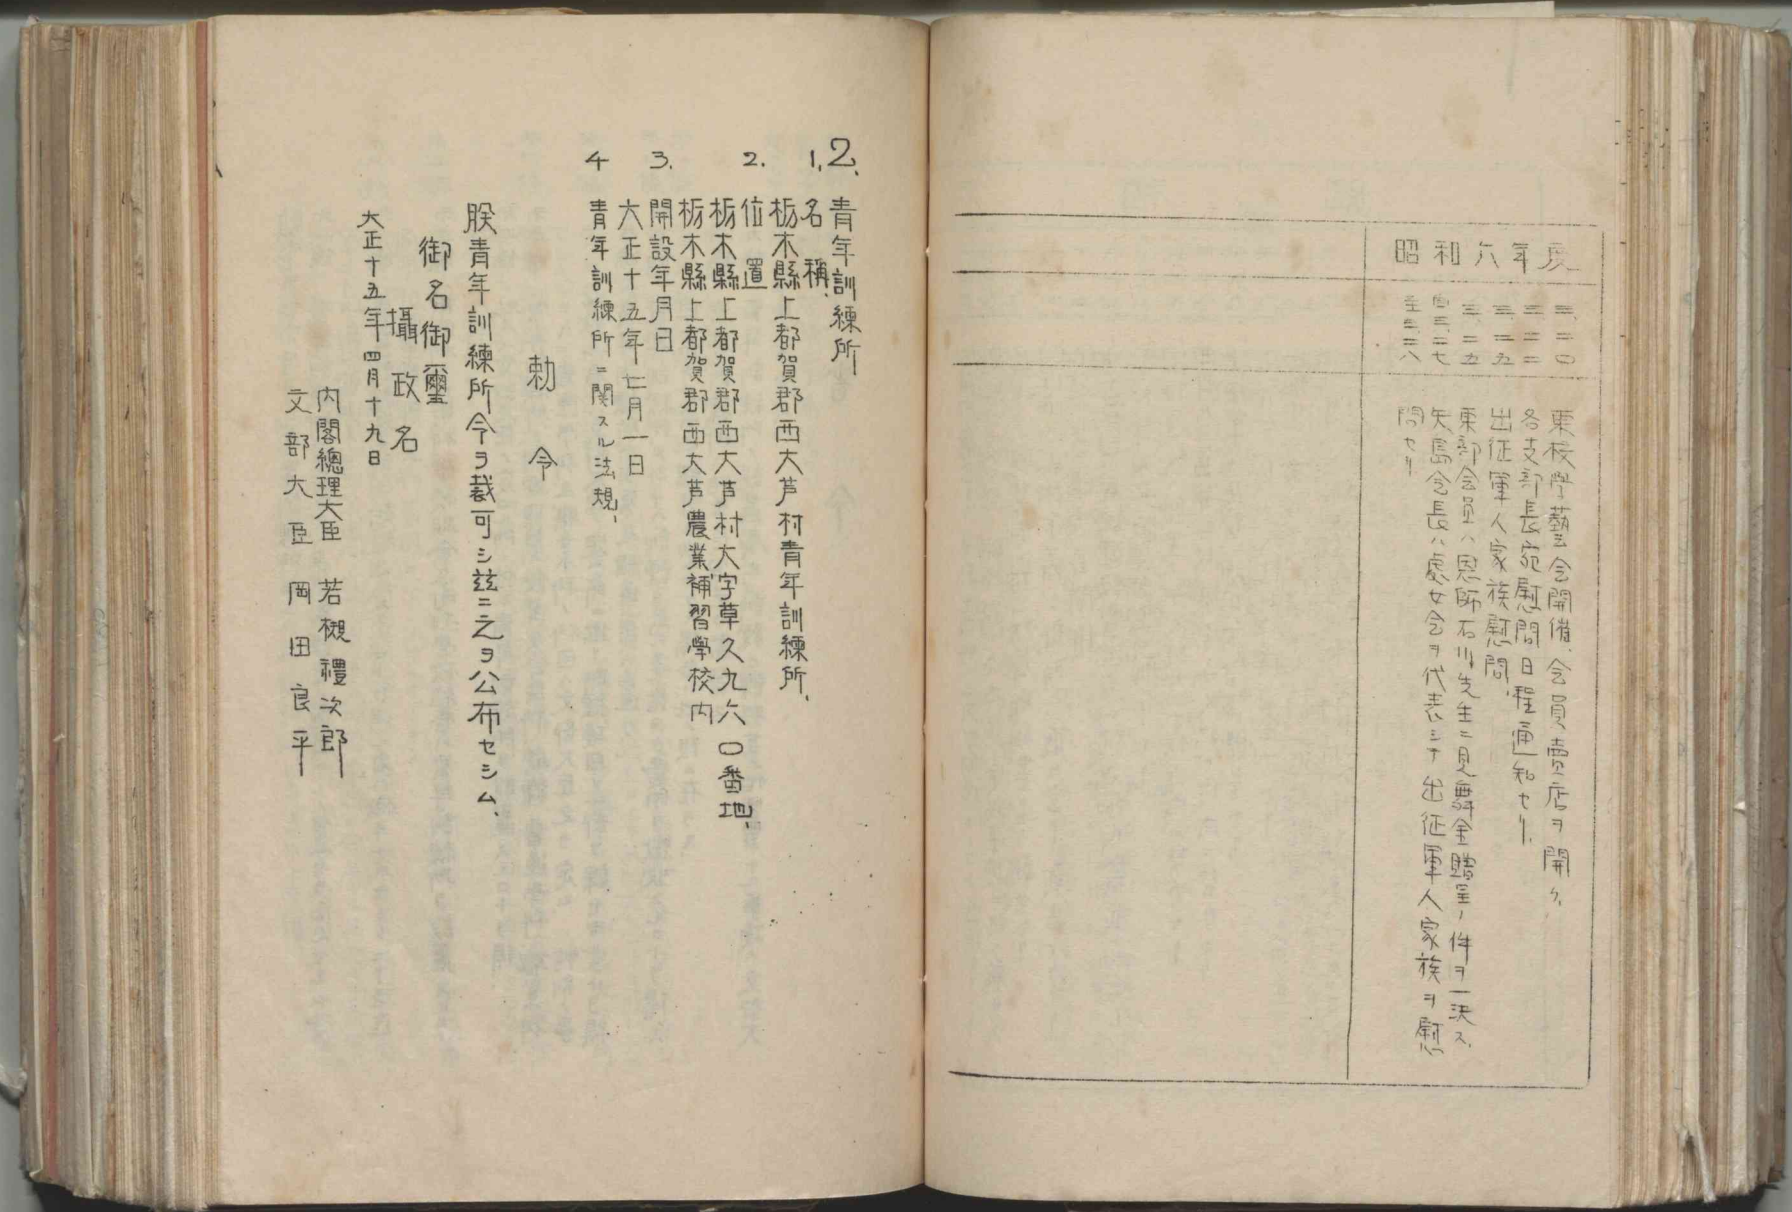 昭和六年度
三、二〇
三、二二
三、二五
三、二五
自三、二七
至三、二八
東校學藝会開催、会員賣店ヲ開ク、
各支部長宛慰問日程通知セリ、
出征軍人家族慰問、
東部会員ハ恩師石川先生ニ見舞金贈呈ノ件ヲ一決ス、
矢島会長ハ處女会ヲ代表シテ出征軍人家族ヲ慰
問セリ
2、青年訓練所
1、名稱、
栃木縣上都賀郡西大芦村青年訓練所、
2、位置
栃木縣上都賀郡西大芦村大字草久九六〇番地、
栃木縣上都賀郡西大芦農業補習學校内
3、開設年月日
大正十五年七月一日
4 青年訓練所ニ関スル法規、
勅令
朕青年訓練所令ヲ裁可シ玆ニ之ヲ公布セシム、
御名御璽
攝政名
大正十五年四月十九日
内閣總理大臣 若槻禮次郎
文部大臣 岡田良平